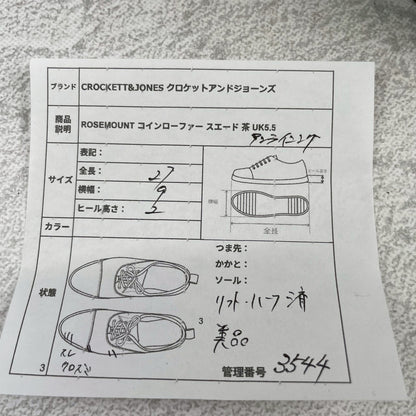 ブランド CROCKETT&JONES クロケットアンドジョーンズ
商品説明 ROSEMOUNT コインローファー スエード 茶 UK5.5
アンライニング
サイズ
表記：
全長： 27
横幅： 9
ヒール高さ： 2
ヒール高さ
横幅
全長
カラー
状態
つま先：
かかと：
ソール：
リフト・ハーフ済
美品
3
スレ
クロズミ
3
管理番号 3544